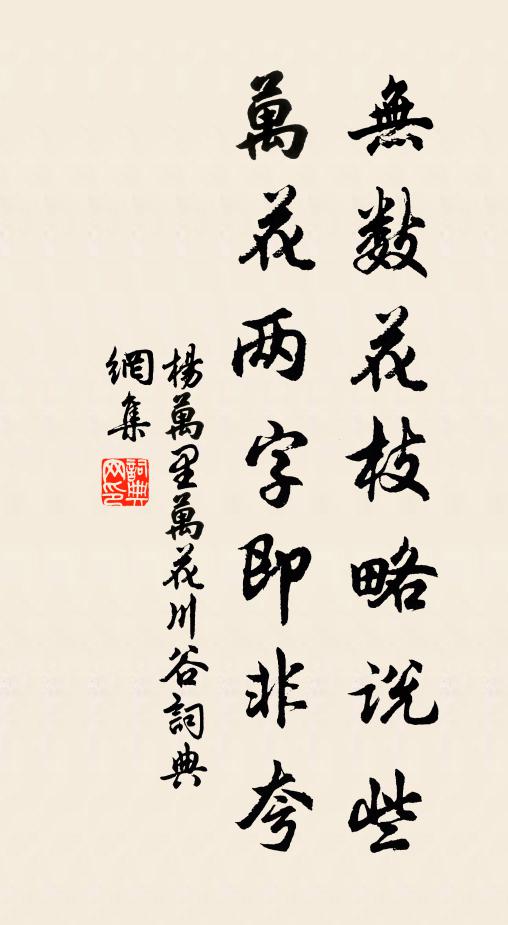 無数花枝略说些
萬花两字即非夸
楊萬里萬花川谷詞典
網集
詞典
网印